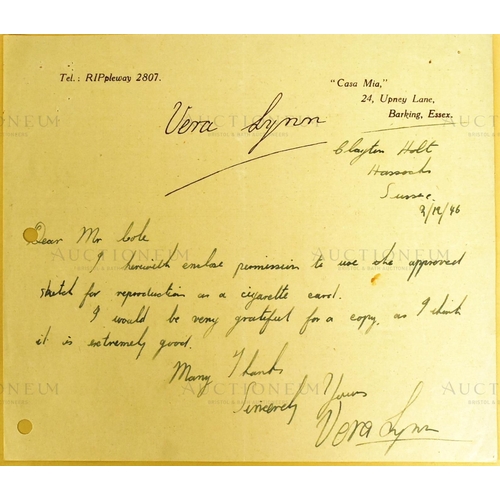 Tel.: RIPpleway 2807.
"Casa Mia,"
24, Upney Lane,
Barking, Essex.
Vera Lynn
Clayton Holt
Hassocks
Sussex.
2/12/46
Dear Mr Cole
I herewith enclose permission to use the approved
sketch for reproduction as a cigarette card.
I would be very grateful for a copy, as I think
it is extremely good.
Many Thanks
Sincerely Yours
Vera Lynn
AUCTIONEUM